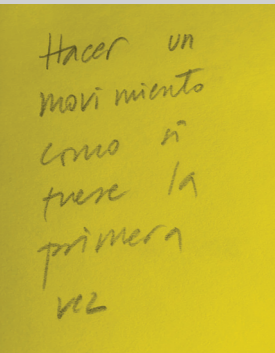 Hacer un
movimiento
como si
fuese la
primera
vez